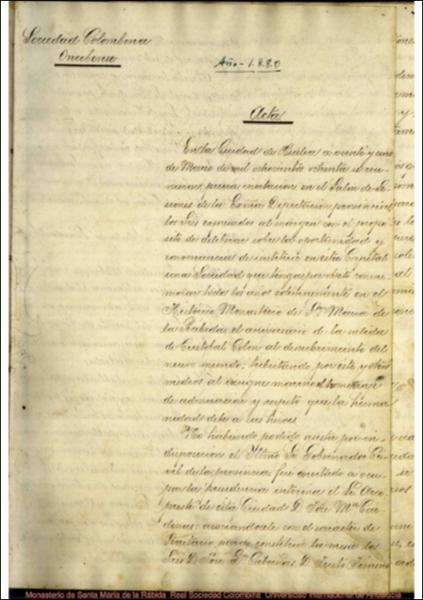 Sociedad Colombina
Onubense
Año - 1.880
Acta
En la Ciudad de Huelva a veinte y uno
de Marzo de mil ochocientos ochenta se reu-
nieron, previa invitacion en el Salon de Se-
siones de la Excma Diputacion provincial
los Sres espresados al margen con el propo-
sito de deliberar sobre la oportunidad y
conveniencia de instituir en esta Capital
una Sociedad que tenga por objeto conme-
morar todos los años solemnemente en el
Historico Monasterio de Sta Maria de
la Rabida el aniversario de la salida
de Cristobal Colon al descubrimiento del
nuevo mundo; tributando, por este y otros
medios al insigne marino el homenaje
de admiracion y respeto que la huma-
nidad debe a sus heroes.
No habiendo podido asistir por in-
disposicion el Yltmo Sr Gobernador Ci-
vil de la provincia fué invitado a ocu-
par la presidencia interina el Sr
de esta Ciudad D. José Ma
asociandole con el caracter de
Secretario para constituir la mesa los
Sres D. José
Monasterio de Santa María de la Rábida. Real Sociedad Colombina. Universidad Internacional de Andalucía